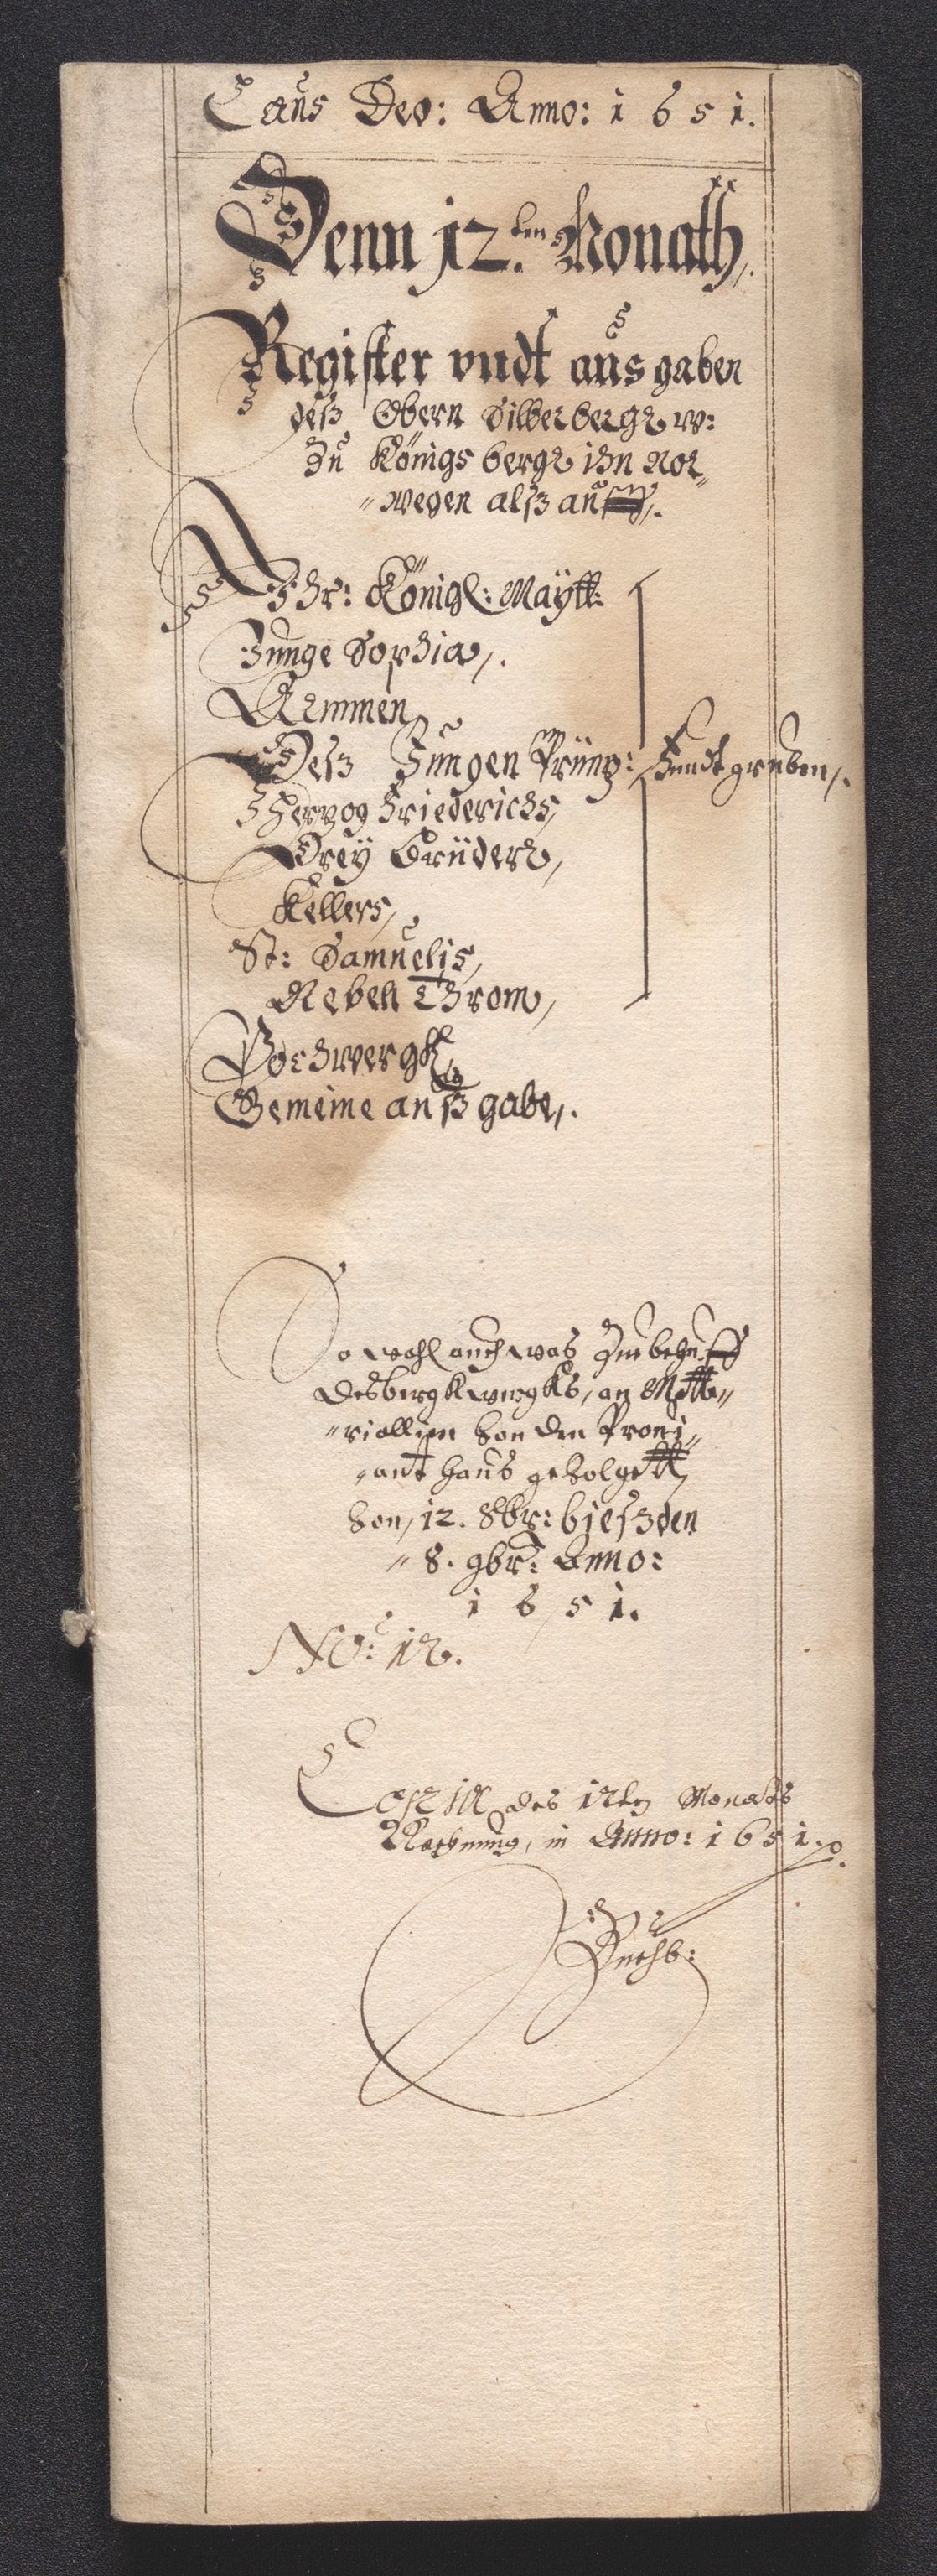 Laus Deo: Anno: 1651.
Denn 12.ten Monath,.
Register vndt ausgaben
deß Obern Silberbergk w:
zu Königsbergk ihn Nor„
„wegen alß auff,.
Ihr: Königl: Maÿtt:
Junge Sophia,.
Armmen
Deß Jungen Prüntz: Fundtgruben,.
Hertzog Friederichs,
Dreÿ Brüder,
Kellers,
St: Samuelis,
Neben Throm,
Pochwergk,
Gemeine außgabe,.
So wohl auch was Zue behuff
des bergkwergks, an Matte„
„riallien von den Provi„
„ant haus gevolgett,
von, 12. 8br: bieß den
„ 8. 9br: Anno:
1651.
No: 12.
des 12ten Monats
Rechnung, in Anno: 1651.